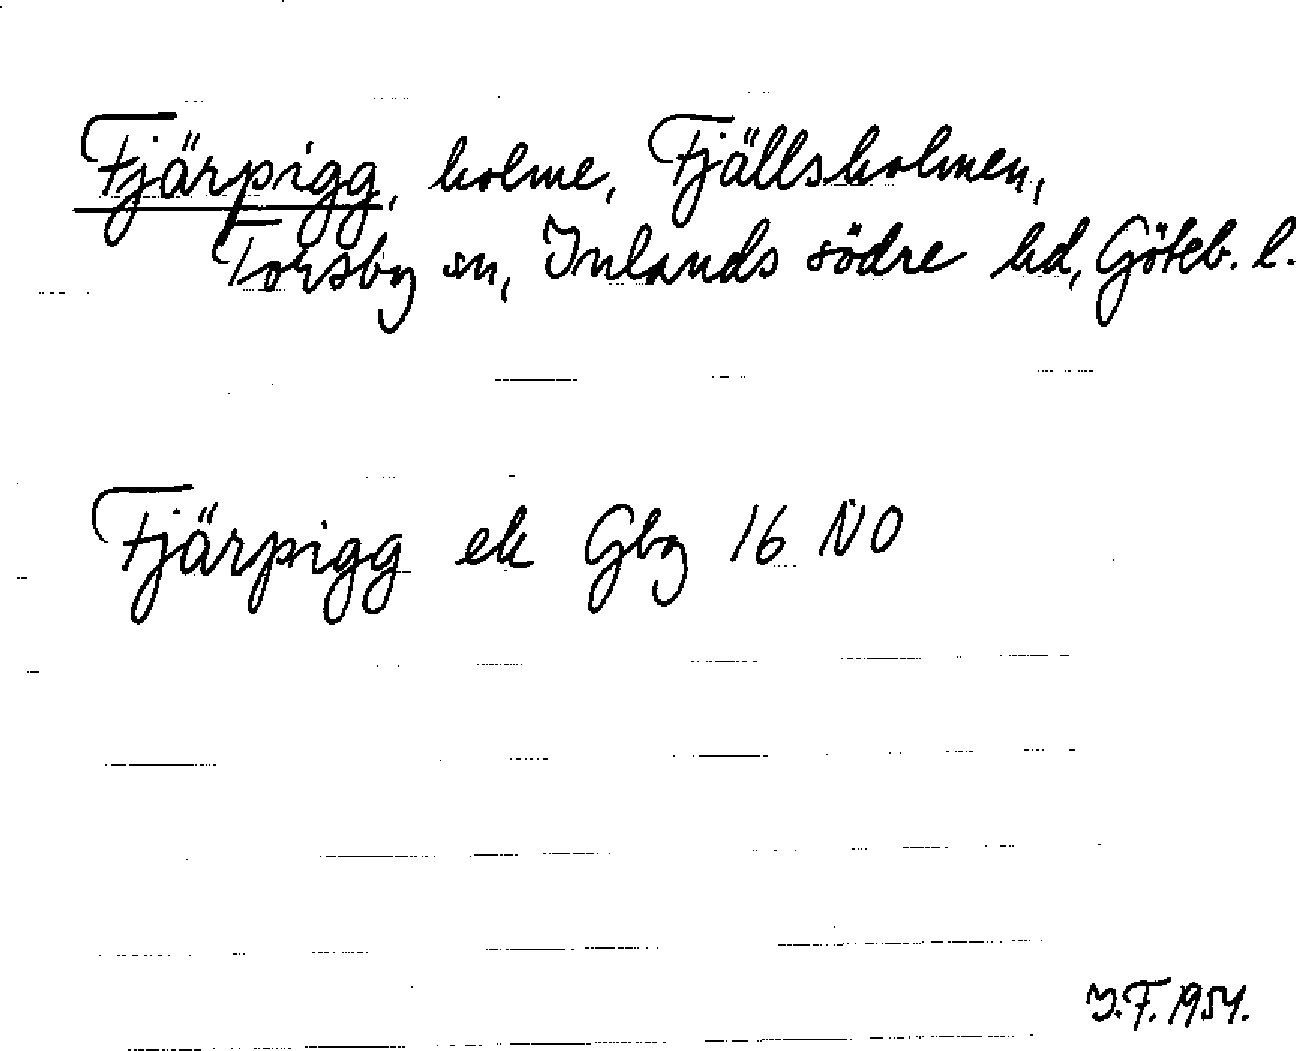 Fjärpigg, holme, Fjällsholmen,
Torsby sn, Inlands södre hd, Göteb. l.
Fjärpigg ek Gbg 16 NO
I.F. 1954.